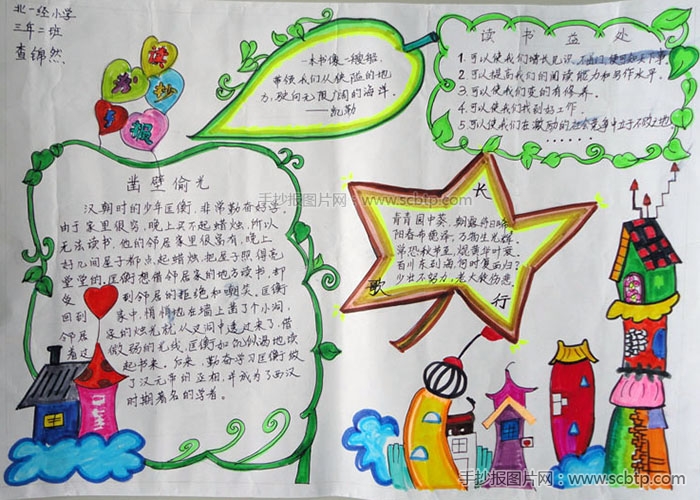 北一经小学
三年二班
查锦然
读书手抄报
一本书像一艘船，
带领我们从狭隘的地
方，驶向无限广阔的海洋。
——凯勒
读书益处
1.可以使我们增长见识
2.可以提高我们的阅读能力和写作水平。
3.可以使我们变的有修养。
4.可以使我们找到好工作。
5.可以使我们在激励的社会竞争中立于不败之地。
……
手抄报图片网：www.scbtp.com
凿壁偷光
汉朝时的少年匡衡，非常勤奋好学。
由于家里很穷，晚上买不起蜡烛，所以
无法读书。他的邻居家里很富有，晚上
好几间屋子都点起蜡烛，把屋子照得亮
堂堂的。匡衡想借邻居家的地方读书，却
受到邻居的拒绝和嘲笑。匡衡
回到家中，悄悄地在墙上凿了个小洞，
邻居家的烛光就从这洞中透过来了。借
着这微弱的光线，匡衡如饥似渴地读
起书来。后来，勤奋学习匡衡做
了汉元帝的丞相，并成为了西汉
时期著名的学者。
长歌行
青青园中葵，朝露待日晞。
阳春布德泽，万物生光辉。
常恐秋节至，焜黄华叶衰。
百川东到海，何时复西归？
少壮不努力，老大徒伤悲。
手抄报图片网：www.scbtp.com